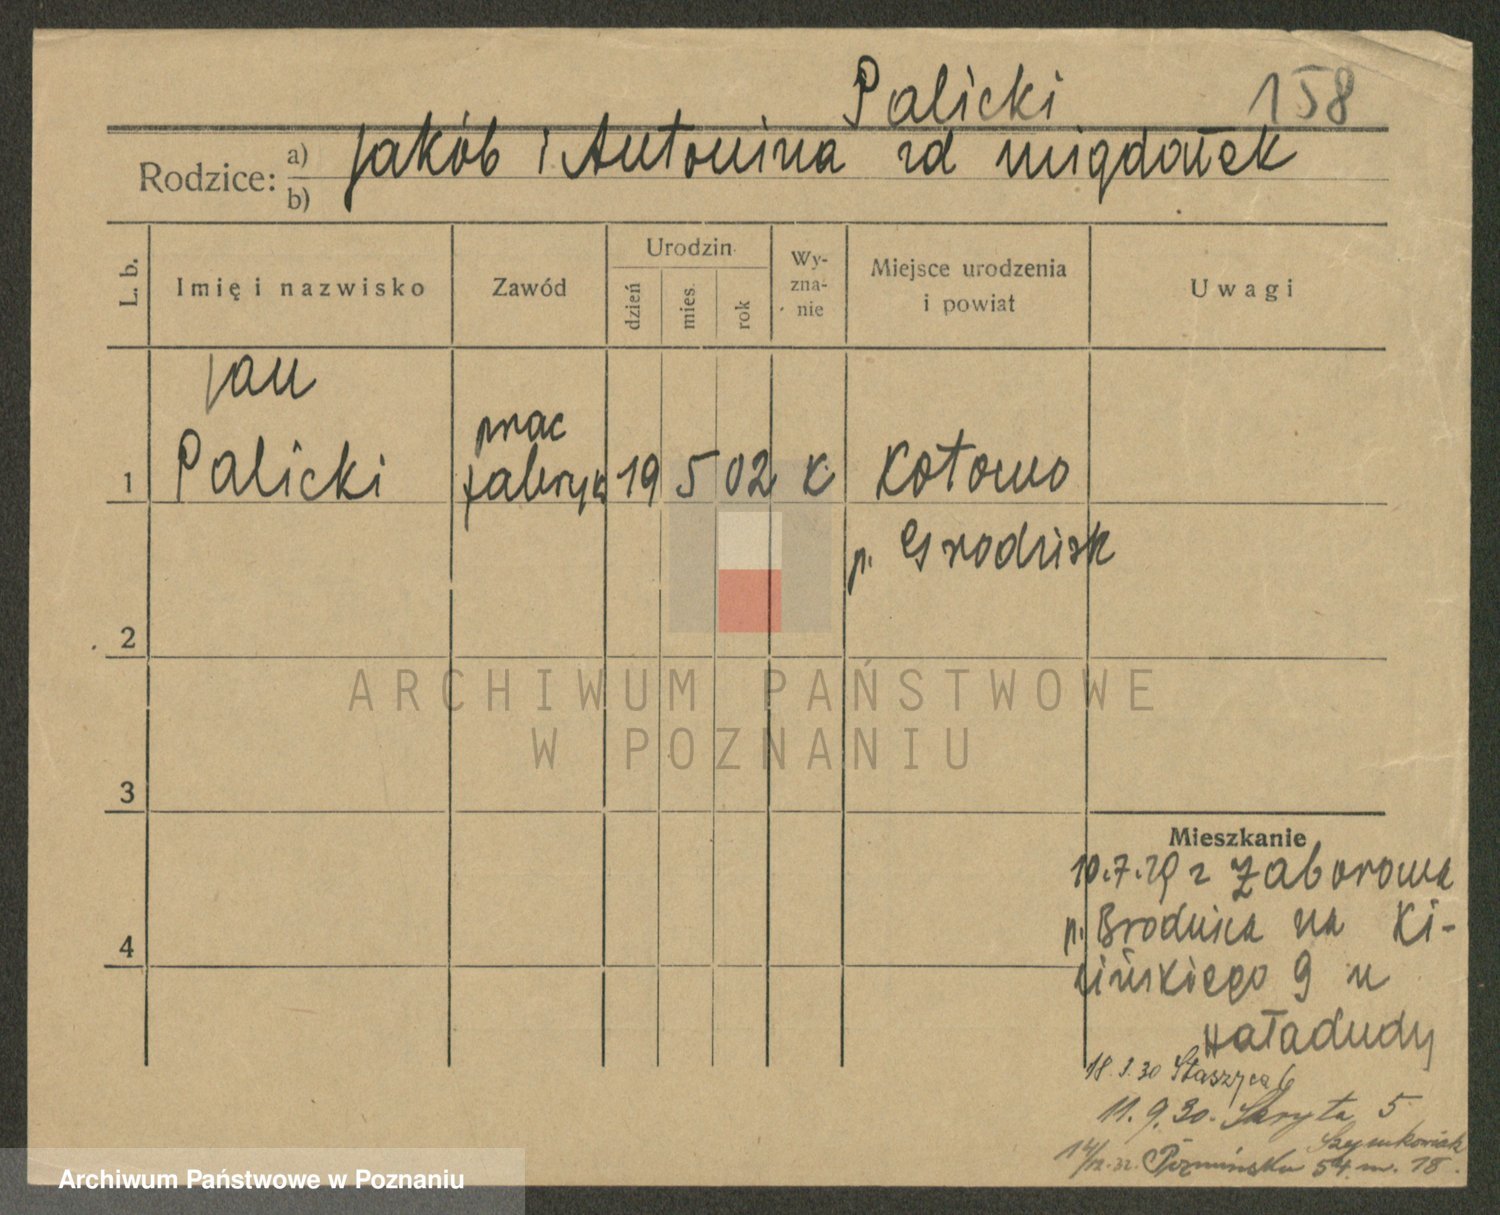 Palicki 158
Rodzice: a) Jakób i Antonina zd migdałek
b)
L. b. Imię i nazwisko Zawód Urodzin dzień mies. rok Wy-zna-nie Miejsce urodzenia i powiat Uwagi
Jan
prac
1 Palicki fabryk 19 5 02 K Kotowo
p. Grodzisk
2
ARCHIWUM PAŃSTWOWE
W POZNANIU
3
Mieszkanie
10.7.29 z Zaborowa
4 p. Brodnica na Ki-
lińskiego 9 u
Haładudy
18.3.30 Staszyca 6
11.9.30. Skryta 5
Szymkowiak
54 m. 18.
Archiwum Państwowe w Poznaniu